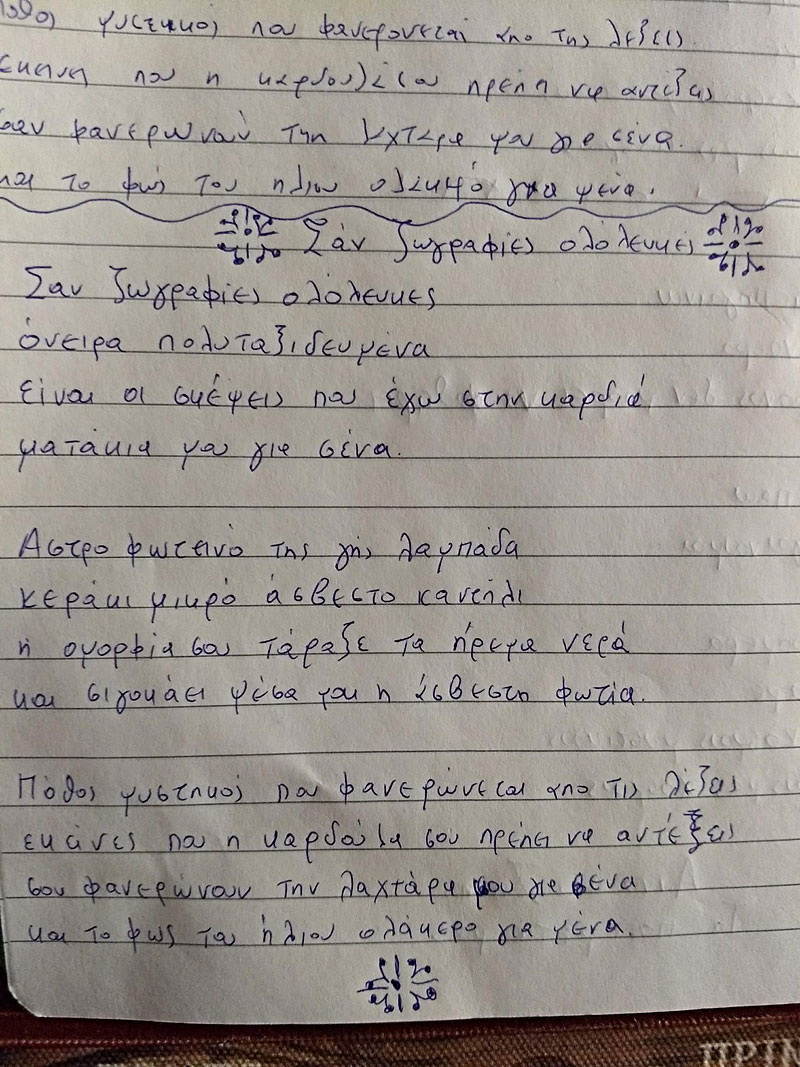 Πόθος μυστικός που φανερονεται απο της λεξεις
εκεινη που η καρδουλα σου πρεπη να αντεξεις
σαν φανερωνουν την λαχταρα μου για σένα.
και το φώς του ηλιου ολακερό για μένα.
Σάν ζωγραφίες ολόλευκες
Σαν ζωγραφίες ολόλευκες
όνειρα πολυταξιδευμένα
είναι οι σκέψεις που έχω στην καρδιά
ματάκια μου για σένα.
Αστρο φωτεινό της γής λαμπάδα
κεράκι μικρό άσβεστο καντήλι
ή ομορφία σου τάραξε τα ήρεμα νερά
και σιγοκάει μέσα μου η άσβεστη φωτία.
Πόθος μυστηκος που φανερώνεται απο τις λέξεις
εκείνες που η καρδούλα σου πρέπει να αντέξεις
σου φανερώνουν την λαχτάρα μου για σένα
και το φως του ήλιου ολάκερο για μένα.
ΠΡΙΜ